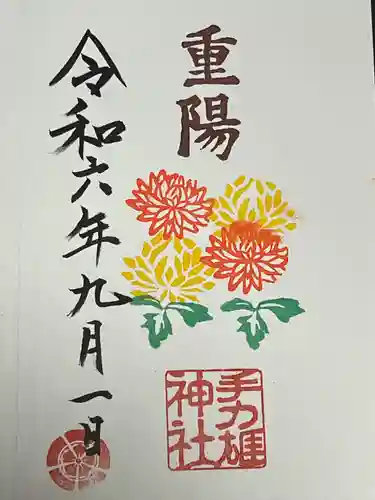 重陽
令和六年九月一日
手力雄
神社